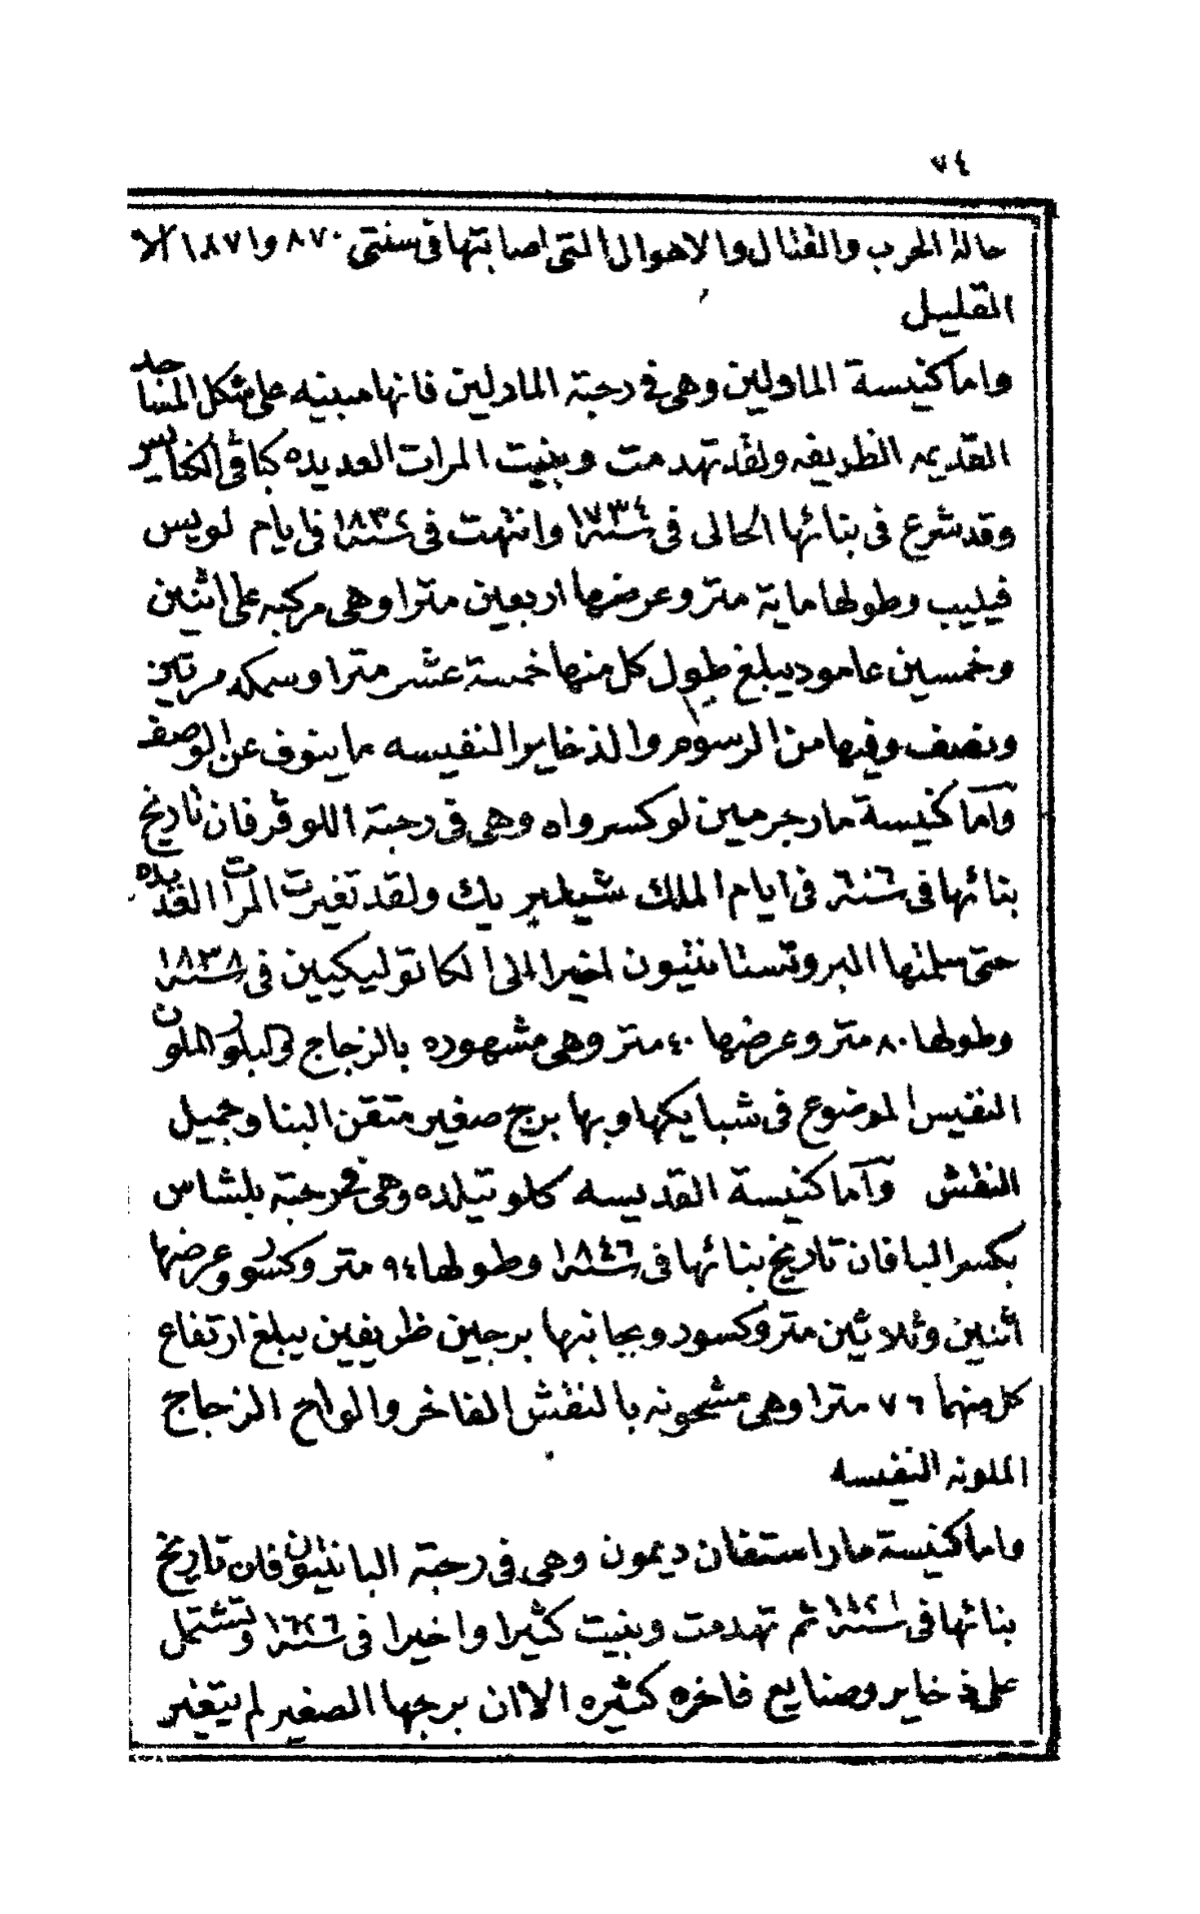 ٧٤
حالة الحرب والقتال والاهوال التى اصابتها فى سنتى ٨٧٠ و١٨٧١ الا
القليل
واما كنيسة المادلين وهى فى رحبة المادلين فانها مبنيه على شكل المساجد
القديمه الظريفه ولقد تهدمت وبنيت المرات العديده كباقى الكنايس
وقد شرع فى بنائها الحالى فى سنة ١٧٣٤ وانتهت فى سنة ١٨٣٢ فى ايام لويس
فيليب وطولها ماية متر وعرضها اربعين مترا وهى مركبه على اثنين
وخمسين عامود يبلغ طول كل منها خمسة عشر مترا وسمكه مرتين
ونصف وفيها من الرسوم والذخاير النفيسه ما ينوف عن الوصف
وآما كنيسة مار جرمين لوكسرواه وهى فى رحبة اللوڤر فان تاريخ
بنائها فى سنة ٦ فى ايام الملك شيلبريك ولقد تغيرت المرات العديده
حتى سلمتها البروتستانتيون اخيرا الى الكاتوليكيين فى سنة ١٨٣٨
وطولها ٨٠ متر وعرضها ٤٠ متر وهى مشهوره بالزجاج البلور الملون
النفيس الموضوع فى شبابيكها وبها برج صغير متقن البنا وجميل
النقش وآما كنيسة القديسه كلوتيلده وهى فى رحبة بلشاس
بكسر البا فان تاريخ بنائها فى سنة ١٨٤٦ وطولها ٩٤ متر وكسور وعرضها
اثنين وثلاثين متر وكسور وبجانبها برجين ظريفين يبلغ ارتفاع
كل منهما ٧٦ مترا وهى مشحونه بالنقش الفاخر والواح الزجاج
الملونه النفيسه
واما كنيسة مار استفان ديمون وهى فى رحبة البانتيون فان تاريخ
بنائها فى سنة ثم تهدمت وبنيت كثيرا واخيرا فى سنة ١٦٢٦ وتشتمل
على ذخاير وصنايع فاخره كثيره الا ان برجها الصغير لم يتغير